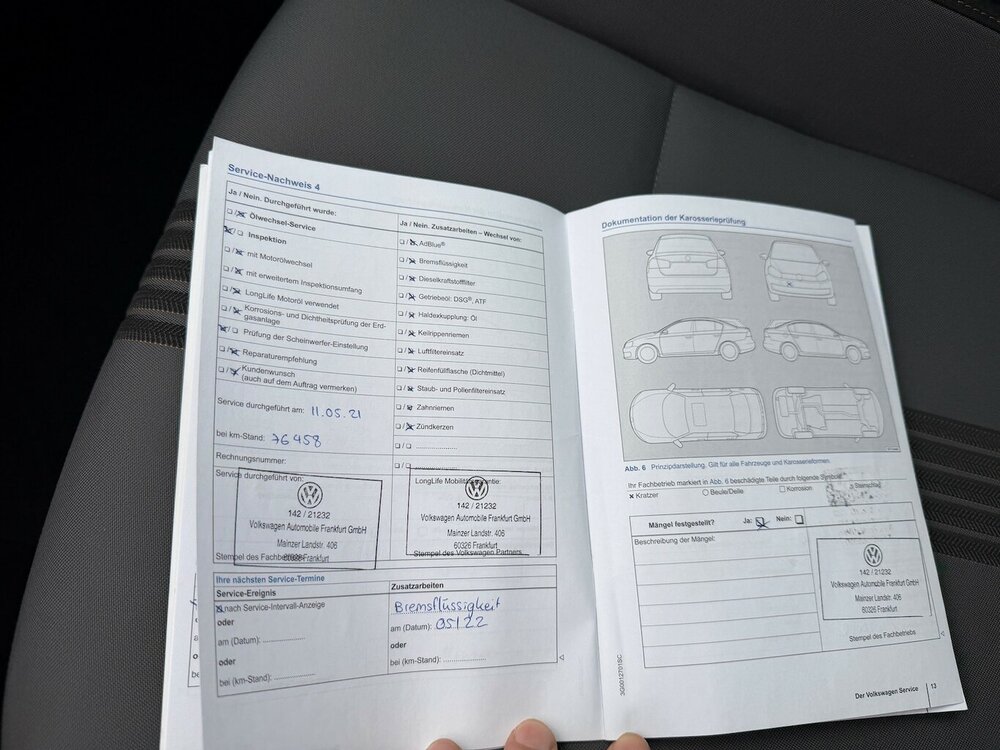 Service-Nachweis 4
Ja / Nein. Durchgeführt wurde:
Ölwechsel-Service
Inspektion
mit Motorölwechsel
mit erweitertem Inspektionsumfang
LongLife Motoröl verwendet
Korrosions- und Dichtheitsprüfung der Erd-
gasanlage
Prüfung der Scheinwerfer-Einstellung
Reparaturempfehlung
Kundenwunsch
(auch auf dem Auftrag vermerken)
Service durchgeführt am: 11.05.21
bei km-Stand: 76458
Rechnungsnummer:
Service durchgeführt von:
142 / 21232
Volkswagen Automobile Frankfurt GmbH
Mainzer Landstr. 406
60326 Frankfurt
Stempel des Fachbetriebs
Ja / Nein. Zusatzarbeiten – Wechsel von:
AdBlue®
Bremsflüssigkeit
Dieselkraftstofffilter
Getriebeöl: DSG®, ATF
Haldexkupplung: Öl
Keilrippenriemen
Luftfiltereinsatz
Reifenfüllflasche (Dichtmittel)
Staub- und Pollenfiltereinsatz
Zahnriemen
Zündkerzen
LongLife Mobilitätsgarantie:
142 / 21232
Volkswagen Automobile Frankfurt GmbH
Mainzer Landstr. 406
60326 Frankfurt
Stempel des Volkswagen Partners
Ihre nächsten Service-Termine
Service-Ereignis
nach Service-Intervall-Anzeige
oder
am (Datum):
oder
bei (km-Stand):
Zusatzarbeiten
Bremsflüssigkeit
am (Datum): 05/22
oder
bei (km-Stand):
Dokumentation der Karosserieprüfung
Abb. 6 Prinzipdarstellung. Gilt für alle Fahrzeuge und Karosserieformen.
Ihr Fachbetrieb markiert in Abb. 6 beschädigte Teile durch folgende Symbole:
x Kratzer Beule/Delle Korrosion Steinschlag
Mängel festgestellt? Ja: Nein:
Beschreibung der Mängel:
142 / 21232
Volkswagen Automobile Frankfurt GmbH
Mainzer Landstr. 406
60326 Frankfurt
Stempel des Fachbetriebs
3G0012701SC
Der Volkswagen Service 13